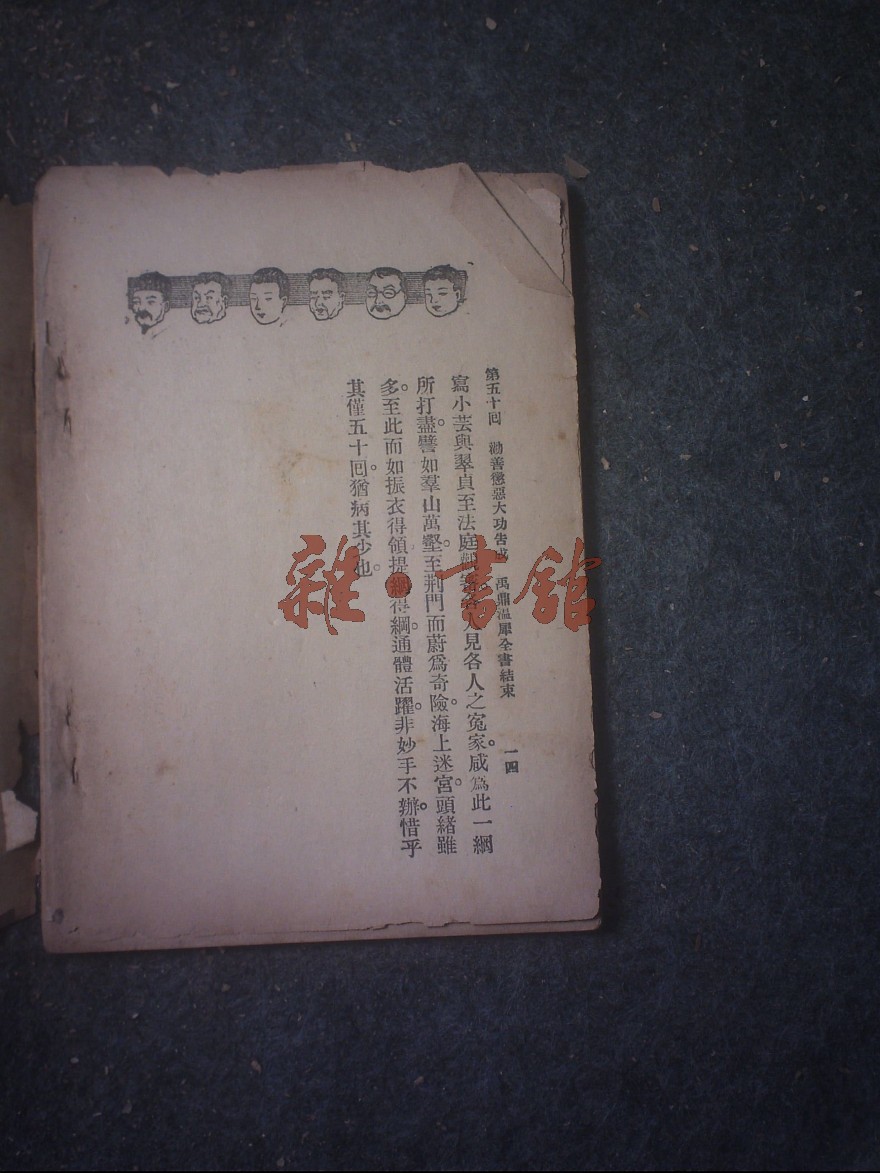 第五十回 勸善懲惡大功告成 禹鼎溫犀全書結束 一四
寫小芸與翠貞至法庭各人見各人之冤家。咸爲此一網
所打盡。譬如羣山萬壑。至荆門而蔚爲奇險。海上迷宮。頭緒雖
多。至此而如振衣得領。提綱得綱。通體活躍。非妙手不辦。惜乎
其僅五十回。猶病其少也。
雜·書館